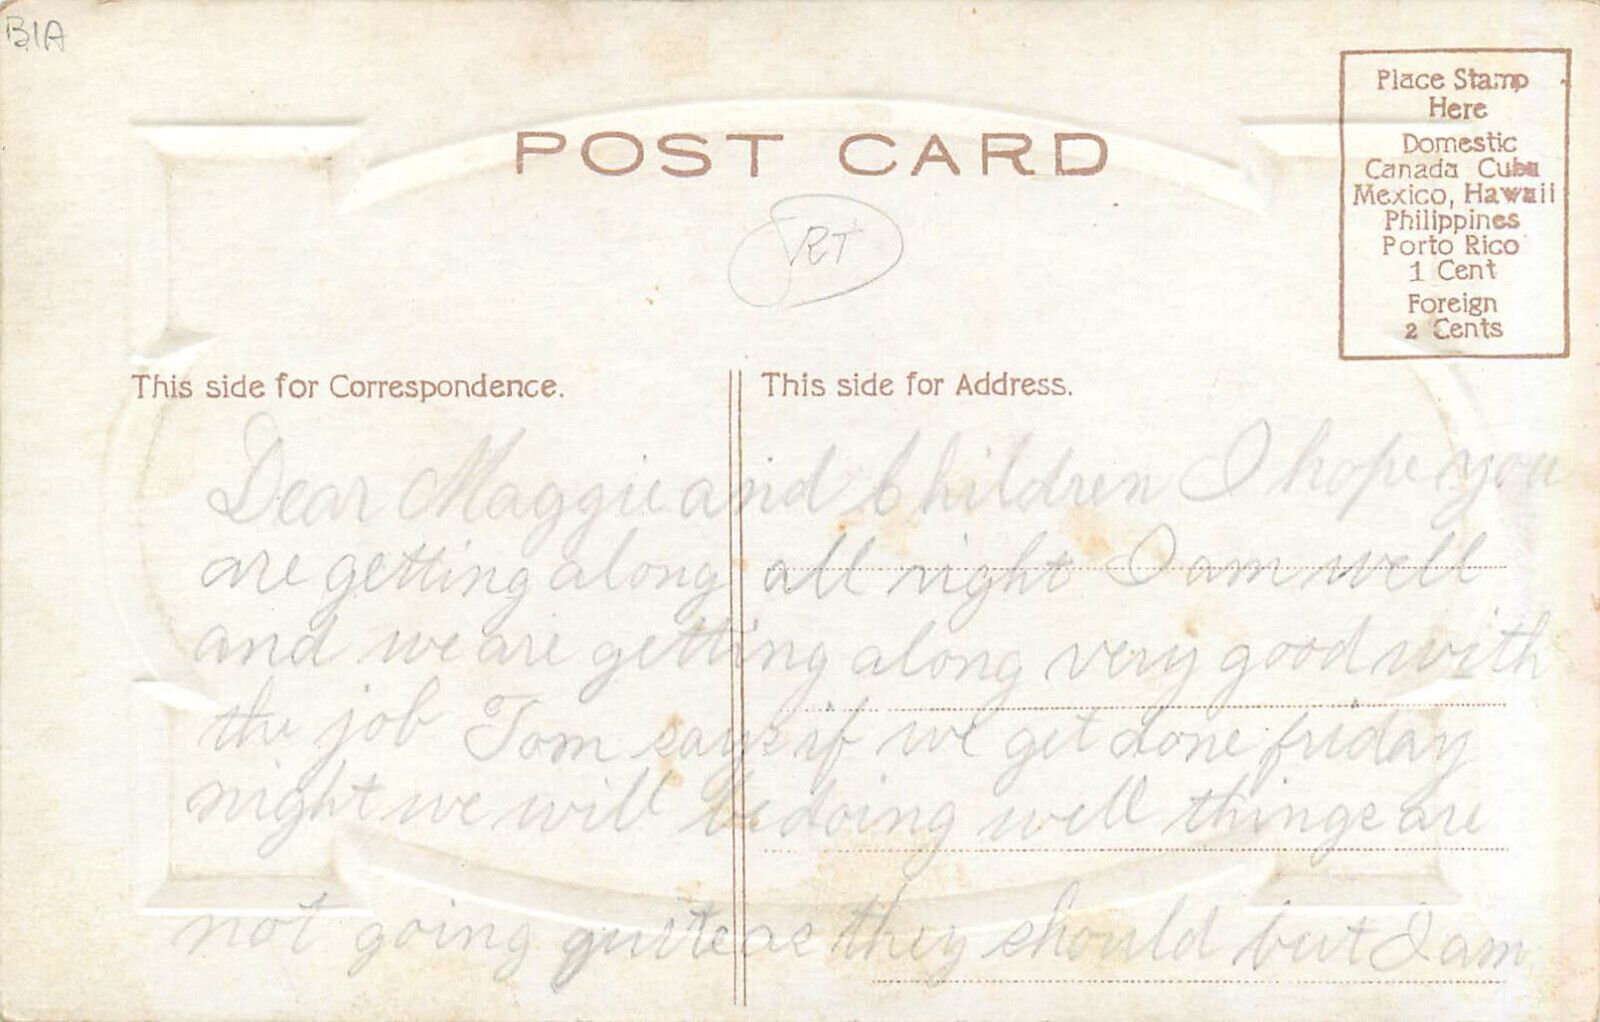 B1A
POST CARD
Place Stamp
Here
Domestic
Canada Cuba
Mexico, Hawaii
Philippines
Porto Rico
1 Cent
Foreign
2 Cents
This side for Correspondence.
This side for Address.
Dear Maggie and Children I hope you
are getting along all right I am well
and we are getting along very good with
the job Tom says if we get done friday
night we will be doing well things are
not going quite as they should but I am